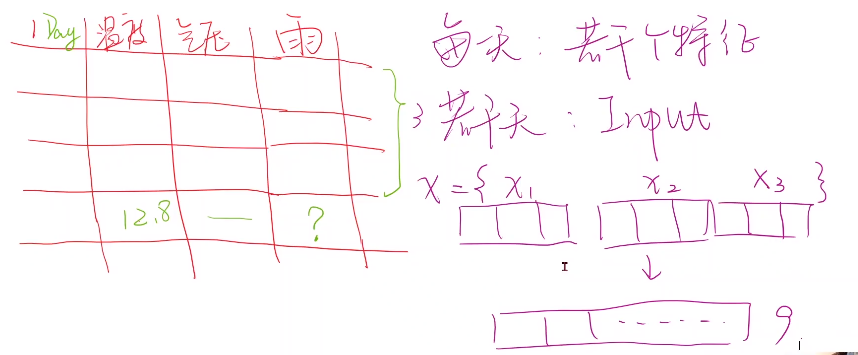 1 Day 温度 气压 雨
每天：若干个特征
3 若干天：Input
X = { x₁ x₂ x₃ }
12.8 — ?
9